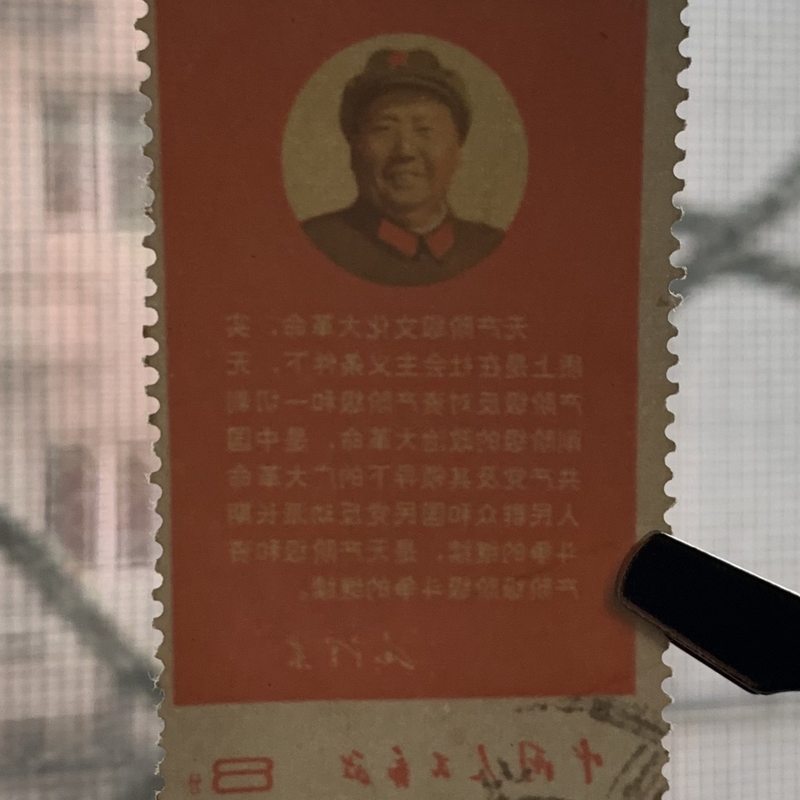 无产阶级文化大革命，实
质上是在社会主义条件下，无
产阶级反对资产阶级和一切剥
削阶级的政治大革命，是中国
共产党及其领导下的广大革命
人民群众和国民党反动派长期
斗争的继续，是无产阶级和资
产阶级阶级斗争的继续。
毛泽东
中国人民邮政 8分